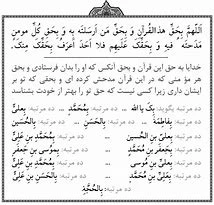 اَللّٰهُمَّ بِحَقِّ هٰذَا الْقُرْآنِ وَ بِحَقِّ مَنْ اَرْسَلْتَهُ بِهِ وَ بِحَقِّ كُلِّ مُومِنٍ
مَدَحْتَهُ فِيهِ وَ بِحَقِّكَ عَلَيْهِمْ فَلا اَحَدَ اَعْرَفُ بِحَقِّكَ مِنْكَ
خدایا به حق این قرآن و بحق آنکس که او را بدان فرستادی و بحق
هر مؤ منی که در این قرآن مدحش کرده ای و بحقی که تو بر
ایشان داری زیرا کسی نیست که حق تو را بهتر از خودت بشناسد
ده مرتبه بگوید: بِكَ يا اَللّٰهُ ... ده مرتبه: بِمُحَمَّدٍ ... ده مرتبه: بِعَلىٍّ
ده مرتبه: بِفاطِمَةَ ... ده مرتبه: بِالْحَسَنِ ... ده مرتبه: بِالْحُسَيْنِ
ده مرتبه: بِعَلِىِّ بْنِ الْحُسَيْنِ ... ده مرتبه: بِمُحَمَّدِ بْنِ عَلِىٍّ
ده مرتبه: بِجَعْفَرِ بْنِ مُحَمَّدٍ ... ده مرتبه: بِمُوسَى بْنِ جَعْفَرٍ
ده مرتبه: بِعَلِىِّ بْنِ مُوسى ... ده مرتبه: بِمُحَمَّدِ بْنِ عَلِىٍّ
ده مرتبه: بِعَلِىِّ بْنِ مُحَمَّدٍ ... ده مرتبه: بِالْحَسَنِ بْنِ عَلِىٍّ
ده مرتبه: بِالْحُجَّةِ